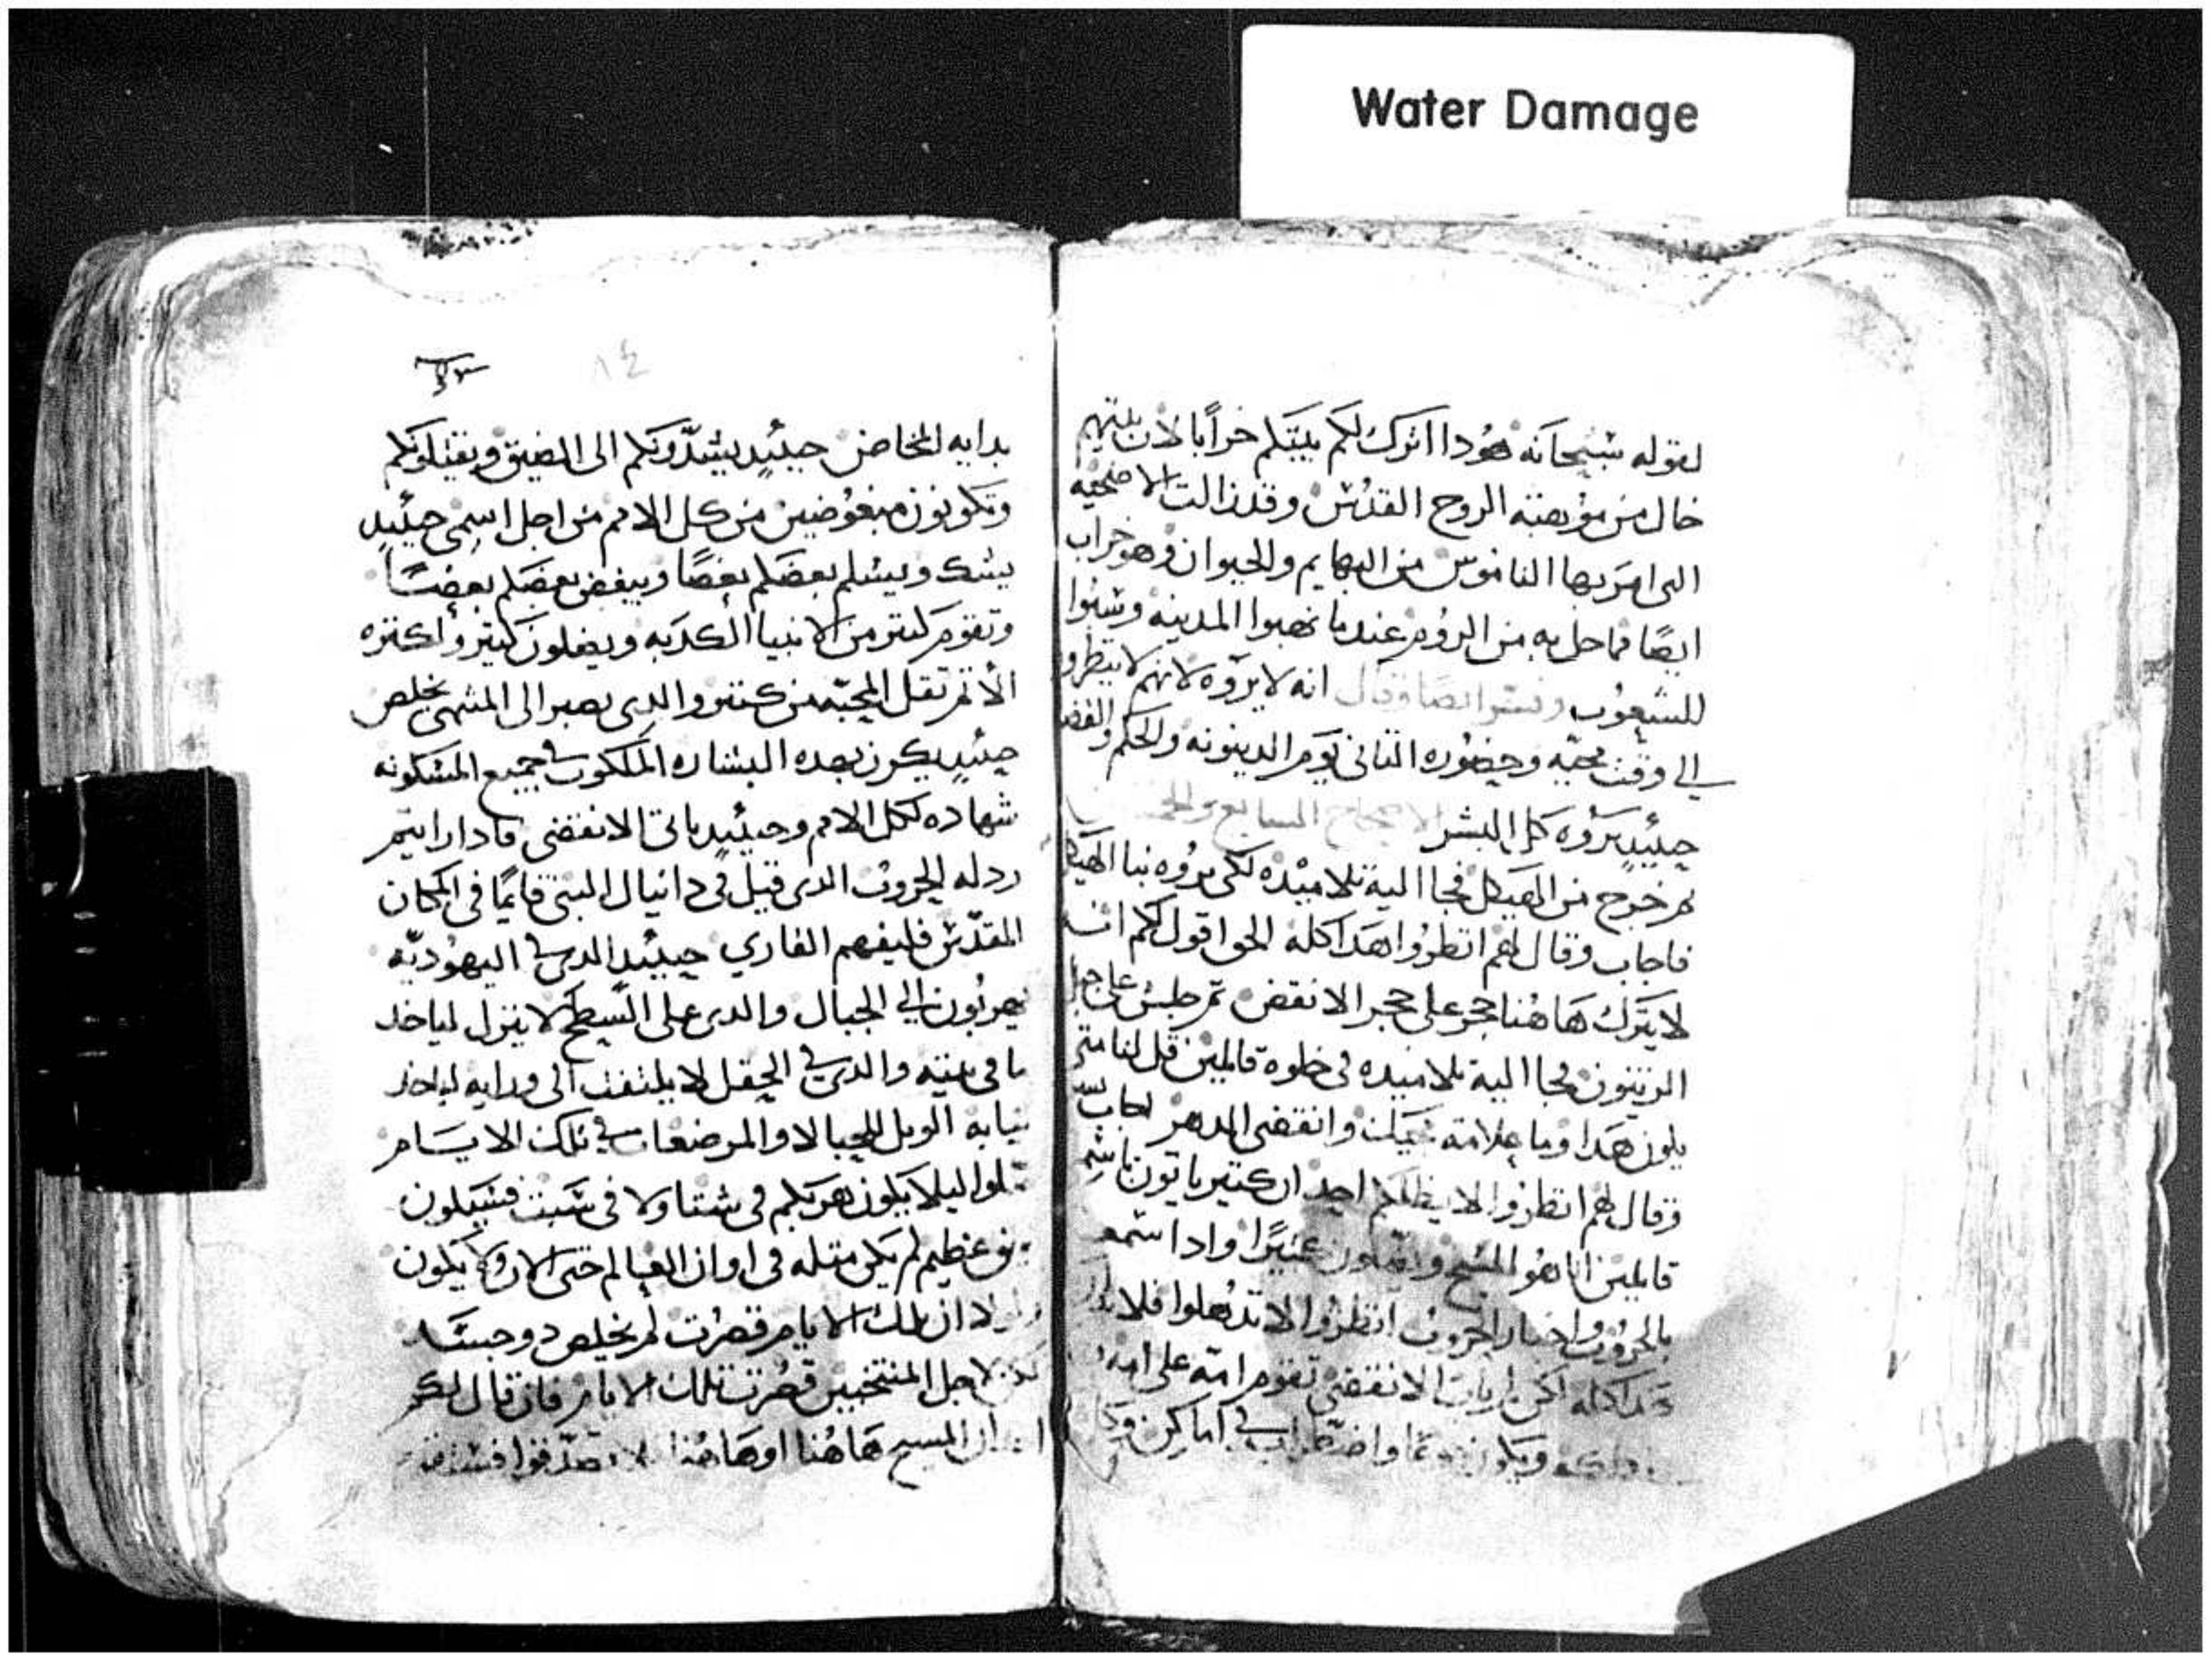 Water Damage
لقوله سبحانه هودا اترك لكم بيتكم خرابا لان بيتهم
خال من موهبته الروح القدس وقد زالت الاضحيه
التى امر بها الناموس من البهايم والحيوان وهو خراب
ايضا مما حل به من الروم عندما نهبوا المدينه وسبوا
للشعوب وفسر ايضا وقال انه لا يروه لانهم لا ينظروا
الي وقت مجيه وحضوره التاني يوم الدينونه والحكم والقضا
حينيد يروه كل البشر الاصحاح السابع و
تم خرج من الهيكل فجا اليه تلاميده لكي يروه بنا الهيكل
فاجاب وقال لهم انظروا هدا كله الحق اقول لكم انه
لا يترك هاهنا حجر على حجر الا نقض تم جلس على جبل
الزيتون فجا اليه تلاميده فى خلوة قايلين قل لنا متى
يكون هدا وما علامة مجيك وانقضى الدهر اجاب
وقال لهم انظروا لا يضلكم احد ان كتير ياتون باسمي
قايلين انا هو المسيح ويضلون كتيرا وادا سمعتم
بالحروب واخبار الحروب انظروا لا تدهلوا فلا بد
هدا كله لكن لم يات الانقضى تقوم امه على امه
ويكون واضطراب في اماكن
٨٤
بدايه المخاض حينيد يشدونكم الى الضيق ويقتلونكم
وتكونون مبغوضين من كل الامم من اجل اسمى حينيد
يشك ويسلم بعضكم بعضا ويبغض بعضكم بعضا
وتقوم كتير من الانبيا الكدبه ويضلون كتير واكتره
الاتم تقل المحبه من كتير والدى يصبر الى المنتهى يخلص
حينيد يكرز بهده البشاره الملكوت فى جميع المسكونه
شهاده لكل الامم وحينيد ياتى الانقضى فادا رايتم
ردله الخروب الدى قيل فى دانيال النبى قايما فى المكان
المقدس فليفهم القاري حينيد الدى في اليهوديه
يهربون الي الجبال والدى على السطح لا ينزل لياخد
ما فى بيته والدى في الحقل لا يلتفت الى ورايه لياخد
تيابه الويل للحبالا والمرضعات في تلك الايام
صلوا ليلا يكون هربكم فى شتا ولا فى سبت فسيكون
ضيق عظيم لم يكن متله فى اوان العالم حتى الان ولا يكون
ولولا ان تلك الايام قصرت لم يخلص دو جسد
لكن لاجل المنتخبين قصرت تلك الايام فان قال لكم
احد ان المسيح هاهنا او هاهنا فلا تصدقوا